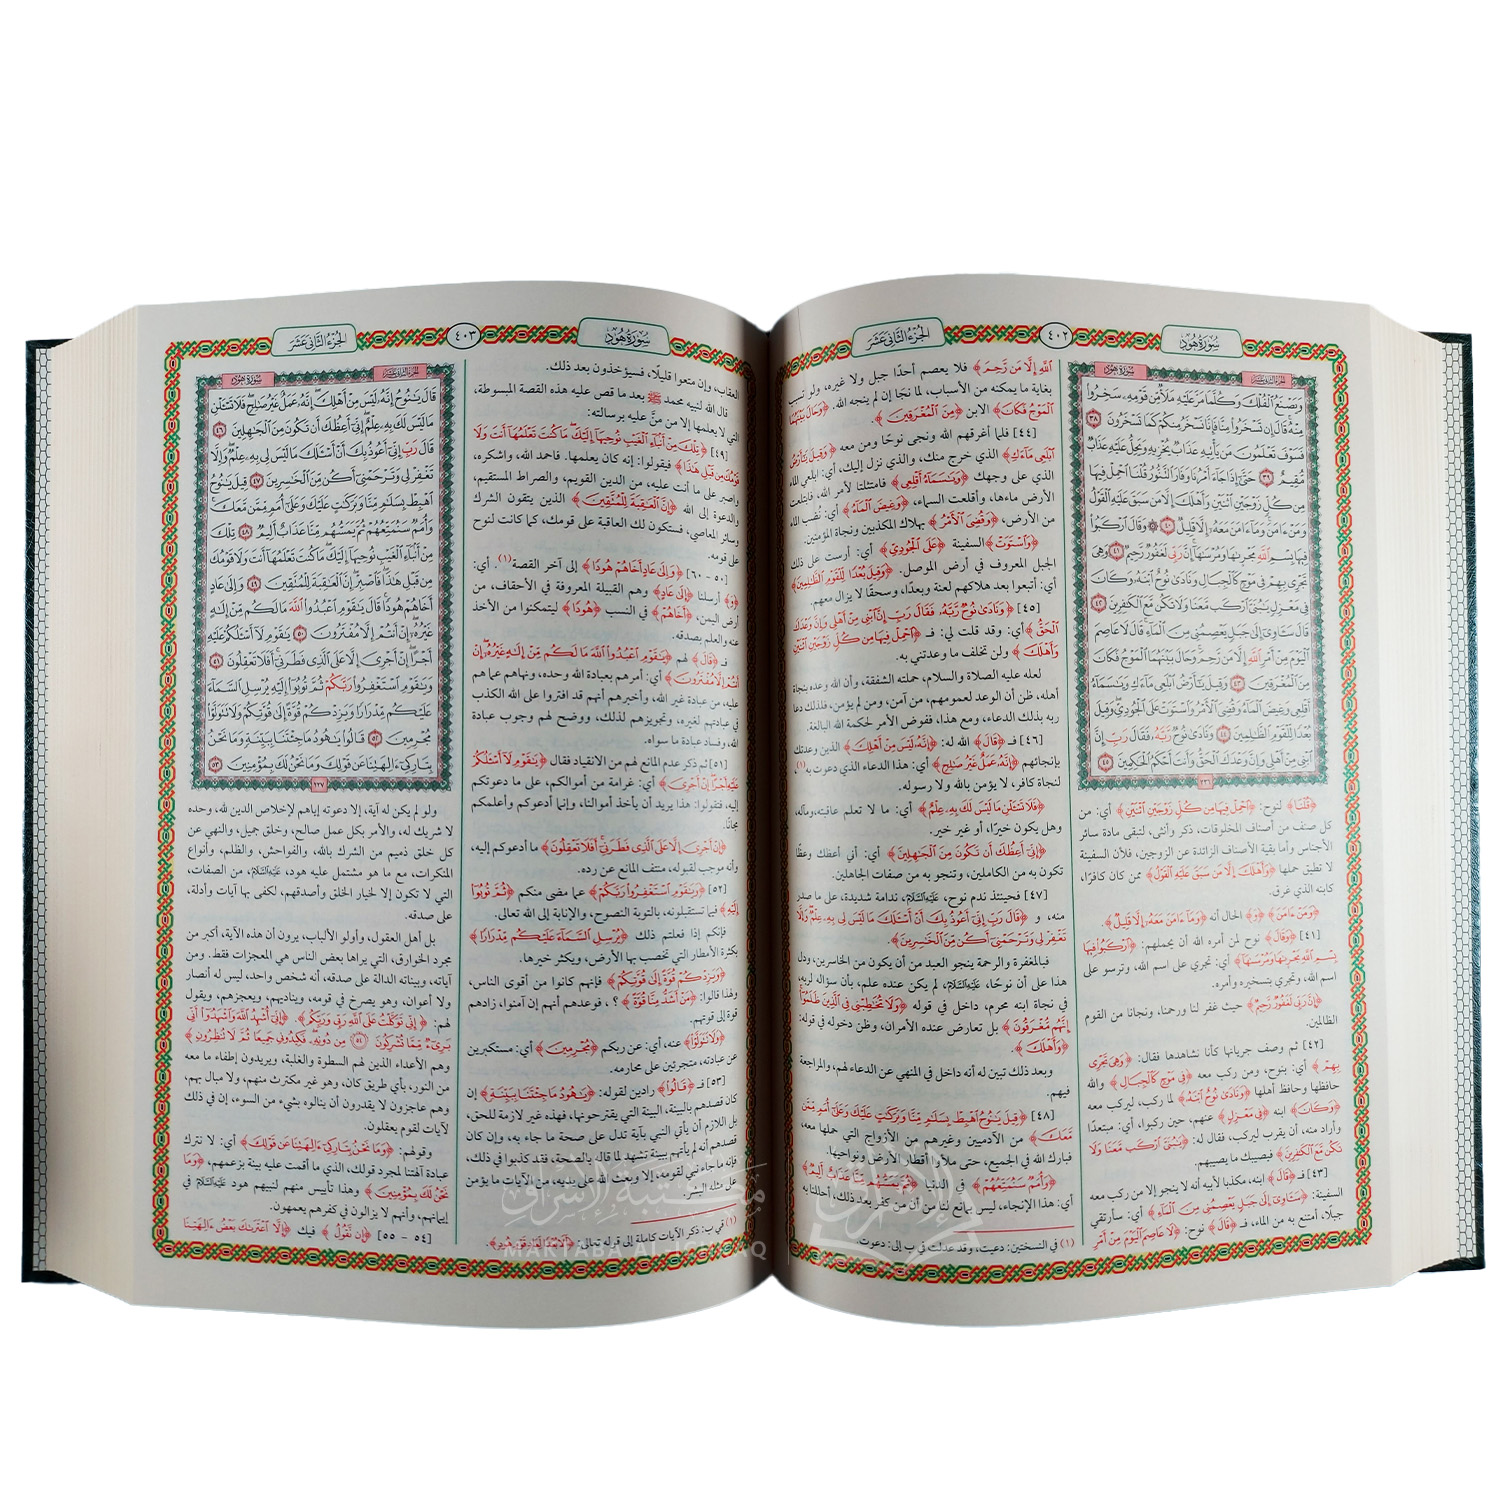 سورة هود
٤٠٢
الجزء الثاني عشر
سورة هود
الجزء الثاني عشر
وَيَصْنَعُ ٱلْفُلْكَ وَكُلَّمَا مَرَّ عَلَيْهِ مَلَأٌ مِّن قَوْمِهِۦ سَخِرُوا۟
مِنْهُ قَالَ إِن تَسْخَرُوا۟ مِنَّا فَإِنَّا نَسْخَرُ مِنكُمْ كَمَا تَسْخَرُونَ ٣٨
فَسَوْفَ تَعْلَمُونَ مَن يَأْتِيهِ عَذَابٌ يُخْزِيهِ وَيَحِلُّ عَلَيْهِ عَذَابٌ
مُّقِيمٌ ٣٩ حَتَّىٰٓ إِذَا جَآءَ أَمْرُنَا وَفَارَ ٱلتَّنُّورُ قُلْنَا ٱحْمِلْ فِيهَا
مِن كُلٍّ زَوْجَيْنِ ٱثْنَيْنِ وَأَهْلَكَ إِلَّا مَن سَبَقَ عَلَيْهِ ٱلْقَوْلُ
وَمَنْ ءَامَنَ وَمَآ ءَامَنَ مَعَهُۥٓ إِلَّا قَلِيلٌ ٤٠ وَقَالَ ٱرْكَبُوا۟
فِيهَا بِسْمِ ٱللَّهِ مَجْر۪ىٰهَا وَمُرْسَىٰهَآ إِنَّ رَبِّى لَغَفُورٌ رَّحِيمٌ ٤١ وَهِىَ
تَجْرِى بِهِمْ فِى مَوْجٍ كَٱلْجِبَالِ وَنَادَىٰ نُوحٌ ٱبْنَهُۥ وَكَانَ
فِى مَعْزِلٍ يَٰبُنَىَّ ٱرْكَب مَّعَنَا وَلَا تَكُن مَّعَ ٱلْكَٰفِرِينَ ٤٢
قَالَ سَـَٔاوِىٓ إِلَىٰ جَبَلٍ يَعْصِمُنِى مِنَ ٱلْمَآءِ قَالَ لَا عَاصِمَ
ٱلْيَوْمَ مِنْ أَمْرِ ٱللَّهِ إِلَّا مَن رَّحِمَ وَحَالَ بَيْنَهُمَا ٱلْمَوْجُ فَكَانَ
مِنَ ٱلْمُغْرَقِينَ ٤٣ وَقِيلَ يَٰٓأَرْضُ ٱبْلَعِى مَآءَكِ وَيَٰسَمَآءُ
أَقْلِعِى وَغِيضَ ٱلْمَآءُ وَقُضِىَ ٱلْأَمْرُ وَٱسْتَوَتْ عَلَى ٱلْجُودِىِّ وَقِيلَ
بُعْدًا لِّلْقَوْمِ ٱلظَّٰلِمِينَ ٤٤ وَنَادَىٰ نُوحٌ رَّبَّهُۥ فَقَالَ رَبِّ إِنَّ
ٱبْنِى مِنْ أَهْلِى وَإِنَّ وَعْدَكَ ٱلْحَقُّ وَأَنتَ أَحْكَمُ ٱلْحَٰكِمِينَ ٤٥
٢٢٦
﴿قُلْنَا﴾ لنوح: ﴿ٱحْمِلْ فِيهَا مِن كُلٍّ زَوْجَيْنِ ٱثْنَيْنِ﴾ أي: من
كل صنف من أصناف المخلوقات، ذكر وأنثى، لتبقى مادة سائر
الأجناس وأما بقية الأصناف الزائدة عن الزوجين، فلأن السفينة
لا تطيق حملها ﴿وَأَهْلَكَ إِلَّا مَن سَبَقَ عَلَيْهِ ٱلْقَوْلُ﴾ ممن كان كافرًا،
كابنه الذي غرق.
﴿وَمَنْ ءَامَنَ﴾ ﴿وَ﴾ الحال أنه ﴿وَمَآ ءَامَنَ مَعَهُۥٓ إِلَّا قَلِيلٌ﴾.
[٤١] ﴿وَقَالَ﴾ نوح لمن أمره الله أن يحملهم: ﴿ٱرْكَبُوا۟ فِيهَا
بِسْمِ ٱللَّهِ مَجْر۪ىٰهَا وَمُرْسَىٰهَآ﴾ أي: تجري على اسم الله، وترسو على
اسم الله، وتجري بتسخيره وأمره.
﴿إِنَّ رَبِّى لَغَفُورٌ رَّحِيمٌ﴾ حيث غفر لنا ورحمنا، ونجانا من القوم
الظالمين.
[٤٢] ثم وصف جريانها كأنا نشاهدها فقال: ﴿وَهِىَ تَجْرِى
بِهِمْ﴾ أي: بنوح، ومن ركب معه ﴿فِى مَوْجٍ كَٱلْجِبَالِ﴾ والله
حافظها وحافظ أهلها ﴿وَنَادَىٰ نُوحٌ ٱبْنَهُۥ﴾ لما ركب، ليركب معه
﴿وَكَانَ﴾ ابنه ﴿فِى مَعْزِلٍ﴾ عنهم، حين ركبوا، أي: مبتعدًا
وأراد منه، أن يقرب ليركب، فقال له: ﴿يَٰبُنَىَّ ٱرْكَب مَّعَنَا وَلَا
تَكُن مَّعَ ٱلْكَٰفِرِينَ﴾ فيصيبك ما يصيبهم.
[٤٣] فـ ﴿قَالَ﴾ ابنه، مكذبا لأبيه أنه لا ينجو إلا من ركب معه
السفينة: ﴿سَـَٔاوِىٓ إِلَىٰ جَبَلٍ يَعْصِمُنِى مِنَ ٱلْمَآءِ﴾ أي: سأرتقي
جبلًا، أمتنع به من الماء، فـ ﴿قَالَ﴾ نوح: ﴿لَا عَاصِمَ ٱلْيَوْمَ مِنْ أَمْرِ
ٱللَّهِ إِلَّا مَن رَّحِمَ﴾ فلا يعصم أحدًا جبل ولا غيره، ولو تسبب
بغاية ما يمكنه من الأسباب، لما نجا إن لم ينجه الله. ﴿وَحَالَ بَيْنَهُمَا
ٱلْمَوْجُ فَكَانَ﴾ الابن ﴿مِنَ ٱلْمُغْرَقِينَ﴾.
[٤٤] فلما أغرقهم الله ونجى نوحًا ومن معه ﴿وَقِيلَ يَٰٓأَرْضُ
ٱبْلَعِى مَآءَكِ﴾ الذي خرج منك، والذي نزل إليك، أي: ابلعي الماء
الذي على وجهك ﴿وَيَٰسَمَآءُ أَقْلِعِى﴾ فامتثلتا لأمر الله، فابتلعت
الأرض ماءها، وأقلعت السماء، ﴿وَغِيضَ ٱلْمَآءُ﴾ أي: نُضب الماء
من الأرض، ﴿وَقُضِىَ ٱلْأَمْرُ﴾ بهلاك المكذبين ونجاة المؤمنين.
﴿وَٱسْتَوَتْ﴾ السفينة ﴿عَلَى ٱلْجُودِىِّ﴾ أي: أرست على ذلك
الجبل المعروف في أرض الموصل. ﴿وَقِيلَ بُعْدًا لِّلْقَوْمِ ٱلظَّٰلِمِينَ﴾
أي: أتبعوا بعد هلاكهم لعنة وبعدًا، وسحقًا لا يزال معهم.
[٤٥] ﴿وَنَادَىٰ نُوحٌ رَّبَّهُۥ فَقَالَ رَبِّ إِنَّ ٱبْنِى مِنْ أَهْلِى وَإِنَّ وَعْدَكَ
ٱلْحَقُّ﴾ أي: وقد قلت لي: فـ ﴿ٱحْمِلْ فِيهَا مِن كُلٍّ زَوْجَيْنِ ٱثْنَيْنِ
وَأَهْلَكَ﴾ ولن تخلف ما وعدتني به.
لعله عليه الصلاة والسلام، حملته الشفقة، وأن الله وعده بنجاة
أهله، ظن أن الوعد لعمومهم، من آمن، ومن لم يؤمن، فلذلك دعا
ربه بذلك الدعاء، ومع هذا، ففوض الأمر لحكمة الله البالغة.
[٤٦] فـ ﴿قَالَ﴾ الله له: ﴿إِنَّهُۥ لَيْسَ مِنْ أَهْلِكَ﴾ الذين وعدتك
بإنجائهم ﴿إِنَّهُۥ عَمَلٌ غَيْرُ صَٰلِحٍ﴾ أي: هذا الدعاء الذي دعوت به(١)،
لنجاة كافر، لا يؤمن بالله ولا رسوله.
﴿فَلَا تَسْـَٔلْنِ مَا لَيْسَ لَكَ بِهِۦ عِلْمٌ﴾ أي: ما لا تعلم عاقبته، ومآله،
وهل يكون خيرًا، أو غير خير.
﴿إِنِّىٓ أَعِظُكَ أَن تَكُونَ مِنَ ٱلْجَٰهِلِينَ﴾ أي: أني أعظك وعظًا
تكون به من الكاملين، وتنجو به من صفات الجاهلين.
[٤٧] فحينئذ ندم نوح، عليه السلام، ندامة شديدة، على ما صدر
منه، و ﴿قَالَ رَبِّ إِنِّىٓ أَعُوذُ بِكَ أَنْ أَسْـَٔلَكَ مَا لَيْسَ لِى بِهِۦ عِلْمٌ وَإِلَّا
تَغْفِرْ لِى وَتَرْحَمْنِىٓ أَكُن مِّنَ ٱلْخَٰسِرِينَ﴾.
فبالمغفرة والرحمة ينجو العبد من أن يكون من الخاسرين، ودل
هذا على أن نوحًا، عليه السلام، لم يكن عنده علم، بأن سؤاله لربه،
في نجاة ابنه محرم، داخل في قوله ﴿وَلَا تُخَٰطِبْنِى فِى ٱلَّذِينَ ظَلَمُوٓا۟
إِنَّهُم مُّغْرَقُونَ﴾ بل تعارض عنده الأمران، وظن دخوله في قوله:
﴿وَأَهْلَكَ﴾.
وبعد ذلك تبين له أنه داخل في المنهي عن الدعاء لهم، والمراجعة
فيهم.
[٤٨] ﴿قِيلَ يَٰنُوحُ ٱهْبِطْ بِسَلَٰمٍ مِّنَّا وَبَرَكَٰتٍ عَلَيْكَ وَعَلَىٰٓ أُمَمٍ مِّمَّن
مَّعَكَ﴾ من الآدميين وغيرهم من الأزواج التي حملها معه،
فبارك الله في الجميع، حتى ملأوا أقطار الأرض ونواحيها.
﴿وَأُمَمٌ سَنُمَتِّعُهُمْ﴾ في الدنيا ﴿ثُمَّ يَمَسُّهُم مِّنَّا عَذَابٌ أَلِيمٌ﴾
أي: هذا الإنجاء، ليس بمانع لنا من أن من كفر بعد ذلك، أحللنا به
(١) في النسختين: دعيت، وقد عدلت في ب إلى: دعوت.
سورة هود
٤٠٣
الجزء الثاني عشر
سورة هود
الجزء الثاني عشر
قَالَ يَٰنُوحُ إِنَّهُۥ لَيْسَ مِنْ أَهْلِكَ إِنَّهُۥ عَمَلٌ غَيْرُ صَٰلِحٍ فَلَا تَسْـَٔلْنِ
مَا لَيْسَ لَكَ بِهِۦ عِلْمٌ إِنِّىٓ أَعِظُكَ أَن تَكُونَ مِنَ ٱلْجَٰهِلِينَ ٤٦
قَالَ رَبِّ إِنِّىٓ أَعُوذُ بِكَ أَنْ أَسْـَٔلَكَ مَا لَيْسَ لِى بِهِۦ عِلْمٌ وَإِلَّا
تَغْفِرْ لِى وَتَرْحَمْنِىٓ أَكُن مِّنَ ٱلْخَٰسِرِينَ ٤٧ قِيلَ يَٰنُوحُ
ٱهْبِطْ بِسَلَٰمٍ مِّنَّا وَبَرَكَٰتٍ عَلَيْكَ وَعَلَىٰٓ أُمَمٍ مِّمَّن مَّعَكَ
وَأُمَمٌ سَنُمَتِّعُهُمْ ثُمَّ يَمَسُّهُم مِّنَّا عَذَابٌ أَلِيمٌ ٤٨ تِلْكَ
مِنْ أَنۢبَآءِ ٱلْغَيْبِ نُوحِيهَآ إِلَيْكَ مَا كُنتَ تَعْلَمُهَآ أَنتَ وَلَا قَوْمُكَ
مِن قَبْلِ هَٰذَا فَٱصْبِرْ إِنَّ ٱلْعَٰقِبَةَ لِلْمُتَّقِينَ ٤٩ وَإِلَىٰ عَادٍ
أَخَاهُمْ هُودًا قَالَ يَٰقَوْمِ ٱعْبُدُوا۟ ٱللَّهَ مَا لَكُم مِّنْ إِلَٰهٍ
غَيْرُهُۥٓ إِنْ أَنتُمْ إِلَّا مُفْتَرُونَ ٥٠ يَٰقَوْمِ لَآ أَسْـَٔلُكُمْ عَلَيْهِ
أَجْرًا إِنْ أَجْرِىَ إِلَّا عَلَى ٱلَّذِى فَطَرَنِىٓ أَفَلَا تَعْقِلُونَ ٥١
وَيَٰقَوْمِ ٱسْتَغْفِرُوا۟ رَبَّكُمْ ثُمَّ تُوبُوٓا۟ إِلَيْهِ يُرْسِلِ ٱلسَّمَآءَ
عَلَيْكُم مِّدْرَارًا وَيَزِدْكُمْ قُوَّةً إِلَىٰ قُوَّتِكُمْ وَلَا تَتَوَلَّوْا۟
مُجْرِمِينَ ٥٢ قَالُوا۟ يَٰهُودُ مَا جِئْتَنَا بِبَيِّنَةٍ وَمَا نَحْنُ
بِتَارِكِىٓ ءَالِهَتِنَا عَن قَوْلِكَ وَمَا نَحْنُ لَكَ بِمُؤْمِنِينَ ٥٣
٢٢٧
العقاب، وإن متعوا قليلًا، فسيؤخذون بعد ذلك.
قال الله لنبيه محمد ﷺ بعد ما قص عليه هذه القصة المبسوطة،
التي لا يعلمها إلا من منَّ عليه برسالته:
[٤٩] ﴿تِلْكَ مِنْ أَنۢبَآءِ ٱلْغَيْبِ نُوحِيهَآ إِلَيْكَ مَا كُنتَ تَعْلَمُهَآ أَنتَ وَلَا
قَوْمُكَ مِن قَبْلِ هَٰذَا﴾ فيقولوا: إنه كان يعلمها. فاحمد الله، واشكره،
واصبر على ما أنت عليه، من الدين القويم، والصراط المستقيم،
والدعوة إلى الله ﴿إِنَّ ٱلْعَٰقِبَةَ لِلْمُتَّقِينَ﴾ الذين يتقون الشرك
وسائر المعاصي، فستكون لك العاقبة على قومك، كما كانت لنوح
على قومه.
[٥٠ – ٦٠] ﴿وَإِلَىٰ عَادٍ أَخَاهُمْ هُودًا﴾ إلى آخر القصة(١). أي:
﴿وَ﴾ أرسلنا ﴿إِلَىٰ عَادٍ﴾ وهم القبيلة المعروفة في الأحقاف، من
أرض اليمن، ﴿أَخَاهُمْ﴾ في النسب ﴿هُودًا﴾ ليتمكنوا من الأخذ
عنه والعلم بصدقه.
فـ ﴿قَالَ﴾ لهم ﴿يَٰقَوْمِ ٱعْبُدُوا۟ ٱللَّهَ مَا لَكُم مِّنْ إِلَٰهٍ غَيْرُهُۥٓ إِنْ
أَنتُمْ إِلَّا مُفْتَرُونَ﴾ أي: أمرهم بعبادة الله وحده، ونهاهم عما هم
عليه، من عبادة غير الله، وأخبرهم أنهم قد افتروا على الله الكذب
في عبادتهم لغيره، وتجويزهم لذلك، ووضح لهم وجوب عبادة
الله، وفساد عبادة ما سواه.
[٥١] ثم ذكر عدم المانع لهم من الانقياد فقال ﴿يَٰقَوْمِ لَآ أَسْـَٔلُكُمْ
عَلَيْهِ أَجْرًا إِنْ أَجْرِىَ﴾ أي: غرامة من أموالكم، على ما دعوتكم
إليه، فتقولوا: هذا يريد أن يأخذ أموالنا، وإنما أدعوكم وأعلمكم
مجانًا.
﴿إِنْ أَجْرِىَ إِلَّا عَلَى ٱلَّذِى فَطَرَنِىٓ أَفَلَا تَعْقِلُونَ﴾ ما أدعوكم إليه،
وأنه موجب لقبوله، منتف المانع عن رده.
[٥٢] ﴿وَيَٰقَوْمِ ٱسْتَغْفِرُوا۟ رَبَّكُمْ﴾ عما مضى منكم ﴿ثُمَّ تُوبُوٓا۟
إِلَيْهِ﴾ فيما تستقبلونه، بالتوبة النصوح، والإنابة إلى الله تعالى.
فإنكم إذا فعلتم ذلك ﴿يُرْسِلِ ٱلسَّمَآءَ عَلَيْكُم مِّدْرَارًا﴾
بكثرة الأمطار التي تخصب بها الأرض، ويكثر خيرها.
﴿وَيَزِدْكُمْ قُوَّةً إِلَىٰ قُوَّتِكُمْ﴾ فإنهم كانوا من أقوى الناس،
ولهذا قالوا: ﴿مَنْ أَشَدُّ مِنَّا قُوَّةً﴾ ؟ ، فوعدهم أنهم إن آمنوا، زادهم
قوة إلى قوتهم.
﴿وَلَا تَتَوَلَّوْا۟﴾ عنه، أي: عن ربكم ﴿مُجْرِمِينَ﴾ أي: مستكبرين
عن عبادته، متجرئين على محارمه.
[٥٣] فـ ﴿قَالُوا۟﴾ رادين لقوله: ﴿يَٰهُودُ مَا جِئْتَنَا بِبَيِّنَةٍ﴾ إن
كان قصدهم بالبينة، البينة التي يقترحونها، فهذه غير لازمة للحق،
بل اللازم أن يأتي النبي بآية تدل على صحة ما جاء به، وإن كان
قصدهم أنه لم يأتهم ببينة تشهد لما قاله بالصحة، فقد كذبوا في ذلك،
فإنه ما جاء نبي لقومه، إلا وبعث الله على يديه، من الآيات ما يؤمن
على مثله البشر.
(١) في ب: ذكر الآيات كاملة إلى قوله تعالى: ﴿أَلَا بُعْدًا لِّعَادٍ قَوْمِ هُودٍ﴾.
ولو لم يكن له آية، إلا دعوته إياهم لإخلاص الدين لله، وحده
لا شريك له، والأمر بكل عمل صالح، وخلق جميل، والنهي عن
كل خلق ذميم من الشرك بالله، والفواحش، والظلم، وأنواع
المنكرات، مع ما هو مشتمل عليه هود، عليه السلام، من الصفات،
التي لا تكون إلا لخيار الخلق وأصدقهم، لكفى بها آيات وأدلة،
على صدقه.
بل أهل العقول، وأولو الألباب، يرون أن هذه الآية، أكبر من
مجرد الخوارق، التي يراها بعض الناس هي المعجزات فقط. ومن
آياته، وبيناته الدالة على صدقه، أنه شخص واحد، ليس له أنصار
ولا أعوان، وهو يصرخ في قومه، ويناديهم، ويعجزهم، ويقول
لهم: ﴿إِنِّى تَوَكَّلْتُ عَلَى ٱللَّهِ رَبِّى وَرَبِّكُم﴾. ﴿إِنِّىٓ أُشْهِدُ ٱللَّهَ وَٱشْهَدُوٓا۟ أَنِّى
بَرِىٓءٌ مِّمَّا تُشْرِكُونَ ٥٤ مِن دُونِهِۦ فَكِيدُونِى جَمِيعًا ثُمَّ لَا تُنظِرُونِ﴾
وهم الأعداء الذين لهم السطوة والغلبة، ويريدون إطفاء ما معه
من النور، بأي طريق كان، وهو غير مكترث منهم، ولا مبال بهم،
وهم عاجزون لا يقدرون أن ينالوه بشيء من السوء، إن في ذلك
لآيات لقوم يعقلون.
وقولهم: ﴿وَمَا نَحْنُ بِتَارِكِىٓ ءَالِهَتِنَا عَن قَوْلِكَ﴾ أي: لا نترك
عبادة آلهتنا لمجرد قولك، الذي ما أقمت عليه بينة بزعمهم، ﴿وَمَا
نَحْنُ لَكَ بِمُؤْمِنِينَ﴾ وهذا تأييس منهم لنبيهم هود عليه السلام في
إيمانهم، وأنهم لا يزالون في كفرهم يعمهون.
[٥٤ – ٥٥] ﴿إِن نَّقُولُ﴾ فيك ﴿إِلَّا ٱعْتَرَىٰكَ بَعْضُ ءَالِهَتِنَا
مكتبة الإشراق
MAKTABA AL-ISHRAQ